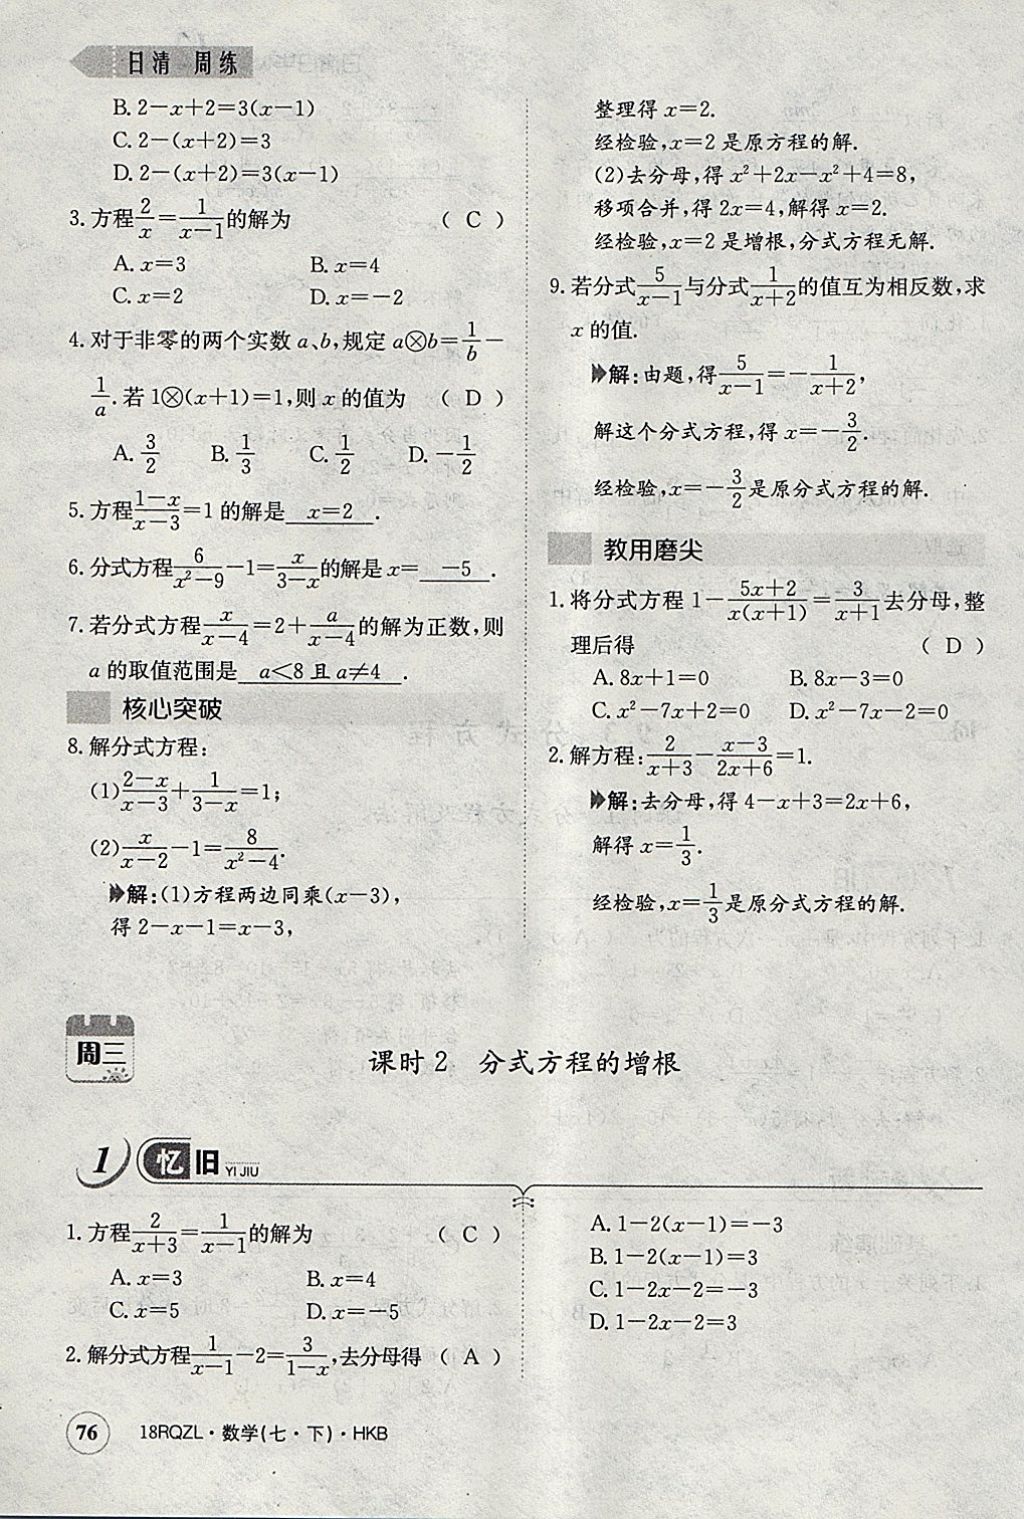 日清 周练
B. 2−x+2=3(x−1)
C. 2−(x+2)=3
D. 2−(x+2)=3(x−1)
3. 方程2/x=1/(x−1)的解为 ( C )
A. x=3 B. x=4
C. x=2 D. x=−2
4. 对于非零的两个实数 a、b,规定 a⊗b=1/b−
1/a.若 1⊗(x+1)=1,则 x 的值为 ( D )
A. 3/2 B. 1/3 C. 1/2 D. −1/2
5. 方程(1−x)/(x−3)=1 的解是 x=2 .
6. 分式方程6/(x²−9)−1=x/(3−x)的解是 x= −5 .
7. 若分式方程x/(x−4)=2+a/(x−4)的解为正数,则
a 的取值范围是 a<8 且 a≠4 .
核心突破
8. 解分式方程:
(1)(2−x)/(x−3)+1/(3−x)=1;
(2)x/(x−2)−1=8/(x²−4).
解:(1)方程两边同乘(x−3),
得 2−x−1=x−3,
整理得 x=2.
经检验,x=2 是原方程的解.
(2)去分母,得 x²+2x−x²+4=8,
移项合并,得 2x=4,解得 x=2.
经检验,x=2 是增根,分式方程无解.
9. 若分式5/(x−1)与分式1/(x+2)的值互为相反数,求
x 的值.
解:由题,得5/(x−1)=−1/(x+2),
解这个分式方程,得 x=−3/2.
经检验,x=−3/2是原分式方程的解.
教用磨尖
1. 将分式方程 1−(5x+2)/(x(x+1))=3/(x+1)去分母,整
理后得 ( D )
A. 8x+1=0 B. 8x−3=0
C. x²−7x+2=0 D. x²−7x−2=0
2. 解方程:2/(x+3)−(x−3)/(2x+6)=1.
解:去分母,得 4−x+3=2x+6,
解得 x=1/3.
经检验,x=1/3是原分式方程的解.
周三
课时 2 分式方程的增根
1 忆旧 YI JIU
1. 方程2/(x+3)=1/(x−1)的解为 ( C )
A. x=3 B. x=4
C. x=5 D. x=−5
2. 解分式方程1/(x−1)−2=3/(1−x),去分母得 ( A )
A. 1−2(x−1)=−3
B. 1−2(x−1)=3
C. 1−2x−2=−3
D. 1−2x−2=3
76 18RQZL·数学(七·下)·HKB